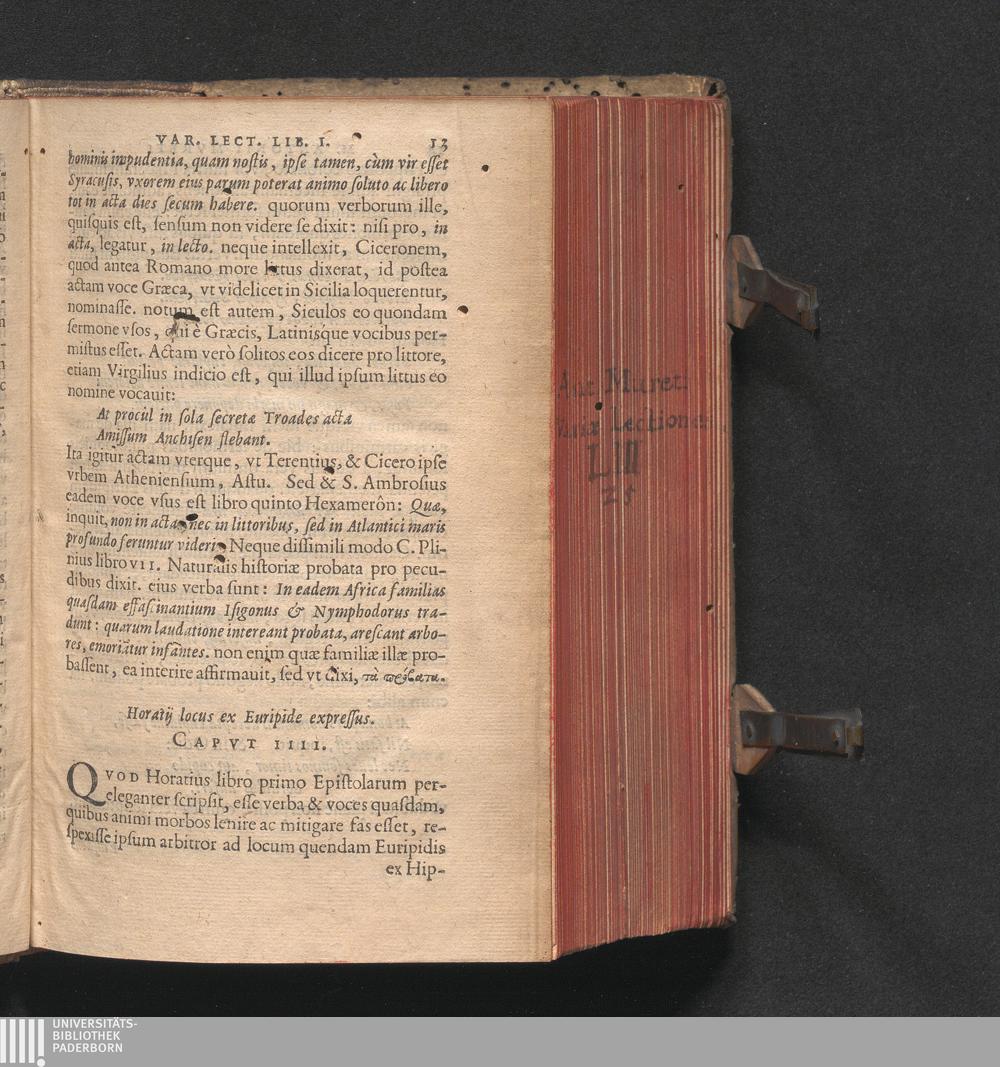 VAR. LECT. LIB. I. 13
hominis impudentia, quam nostis, ipse tamen, cùm vir esset
Syracusis, vxorem eius parum poterat animo soluto ac libero
tot in acta dies secum habere. quorum verborum ille,
quisquis est, sensum non videre se dixit: nisi pro, in
acta, legatur, in lecto. neque intellexit, Ciceronem,
quod antea Romano more litus dixerat, id postea
actam voce Græca, vt videlicet in Sicilia loquerentur,
nominasse. notum est autem, Siculos eo quondam
sermone vsos, qui è Græcis, Latinisque vocibus per-
mistus esset. Actam verò solitos eos dicere pro littore,
etiam Virgilius indicio est, qui illud ipsum littus eo
nomine vocauit:
At procul in sola secretæ Troades acta
Amissum Anchisen flebant.
Ita igitur actam vterque, vt Terentius, & Cicero ipse
vrbem Atheniensium, Astu. Sed & S. Ambrosius
eadem voce vsus est libro quinto Hexamerôn: Quæ,
inquit, non in acta, nec in littoribus, sed in Atlantici maris
profundo feruntur videri. Neque dissimili modo C. Pli-
nius libro VII. Naturalis historiæ probata pro pecu-
dibus dixit. eius verba sunt: In eadem Africa familias
quasdam effascinantium Isigonus & Nymphodorus tra-
dunt: quarum laudatione intereant probata, arescant arbo-
res, emoriātur infantes. non enim quæ familiæ illæ pro-
bassent, ea interire affirmauit, sed vt dixi, τὰ πρόβατα.
Horatij locus ex Euripide expressus.
CAPVT IIII.
QVOD Horatius libro primo Epistolarum per-
eleganter scripsit, esse verba & voces quasdam,
quibus animi morbos lenire ac mitigare fas esset, re-
spexisse ipsum arbitror ad locum quendam Euripidis
ex Hip-
Ant. Mureti
Variæ Lectiones
UNIVERSITÄTS-
BIBLIOTHEK
PADERBORN